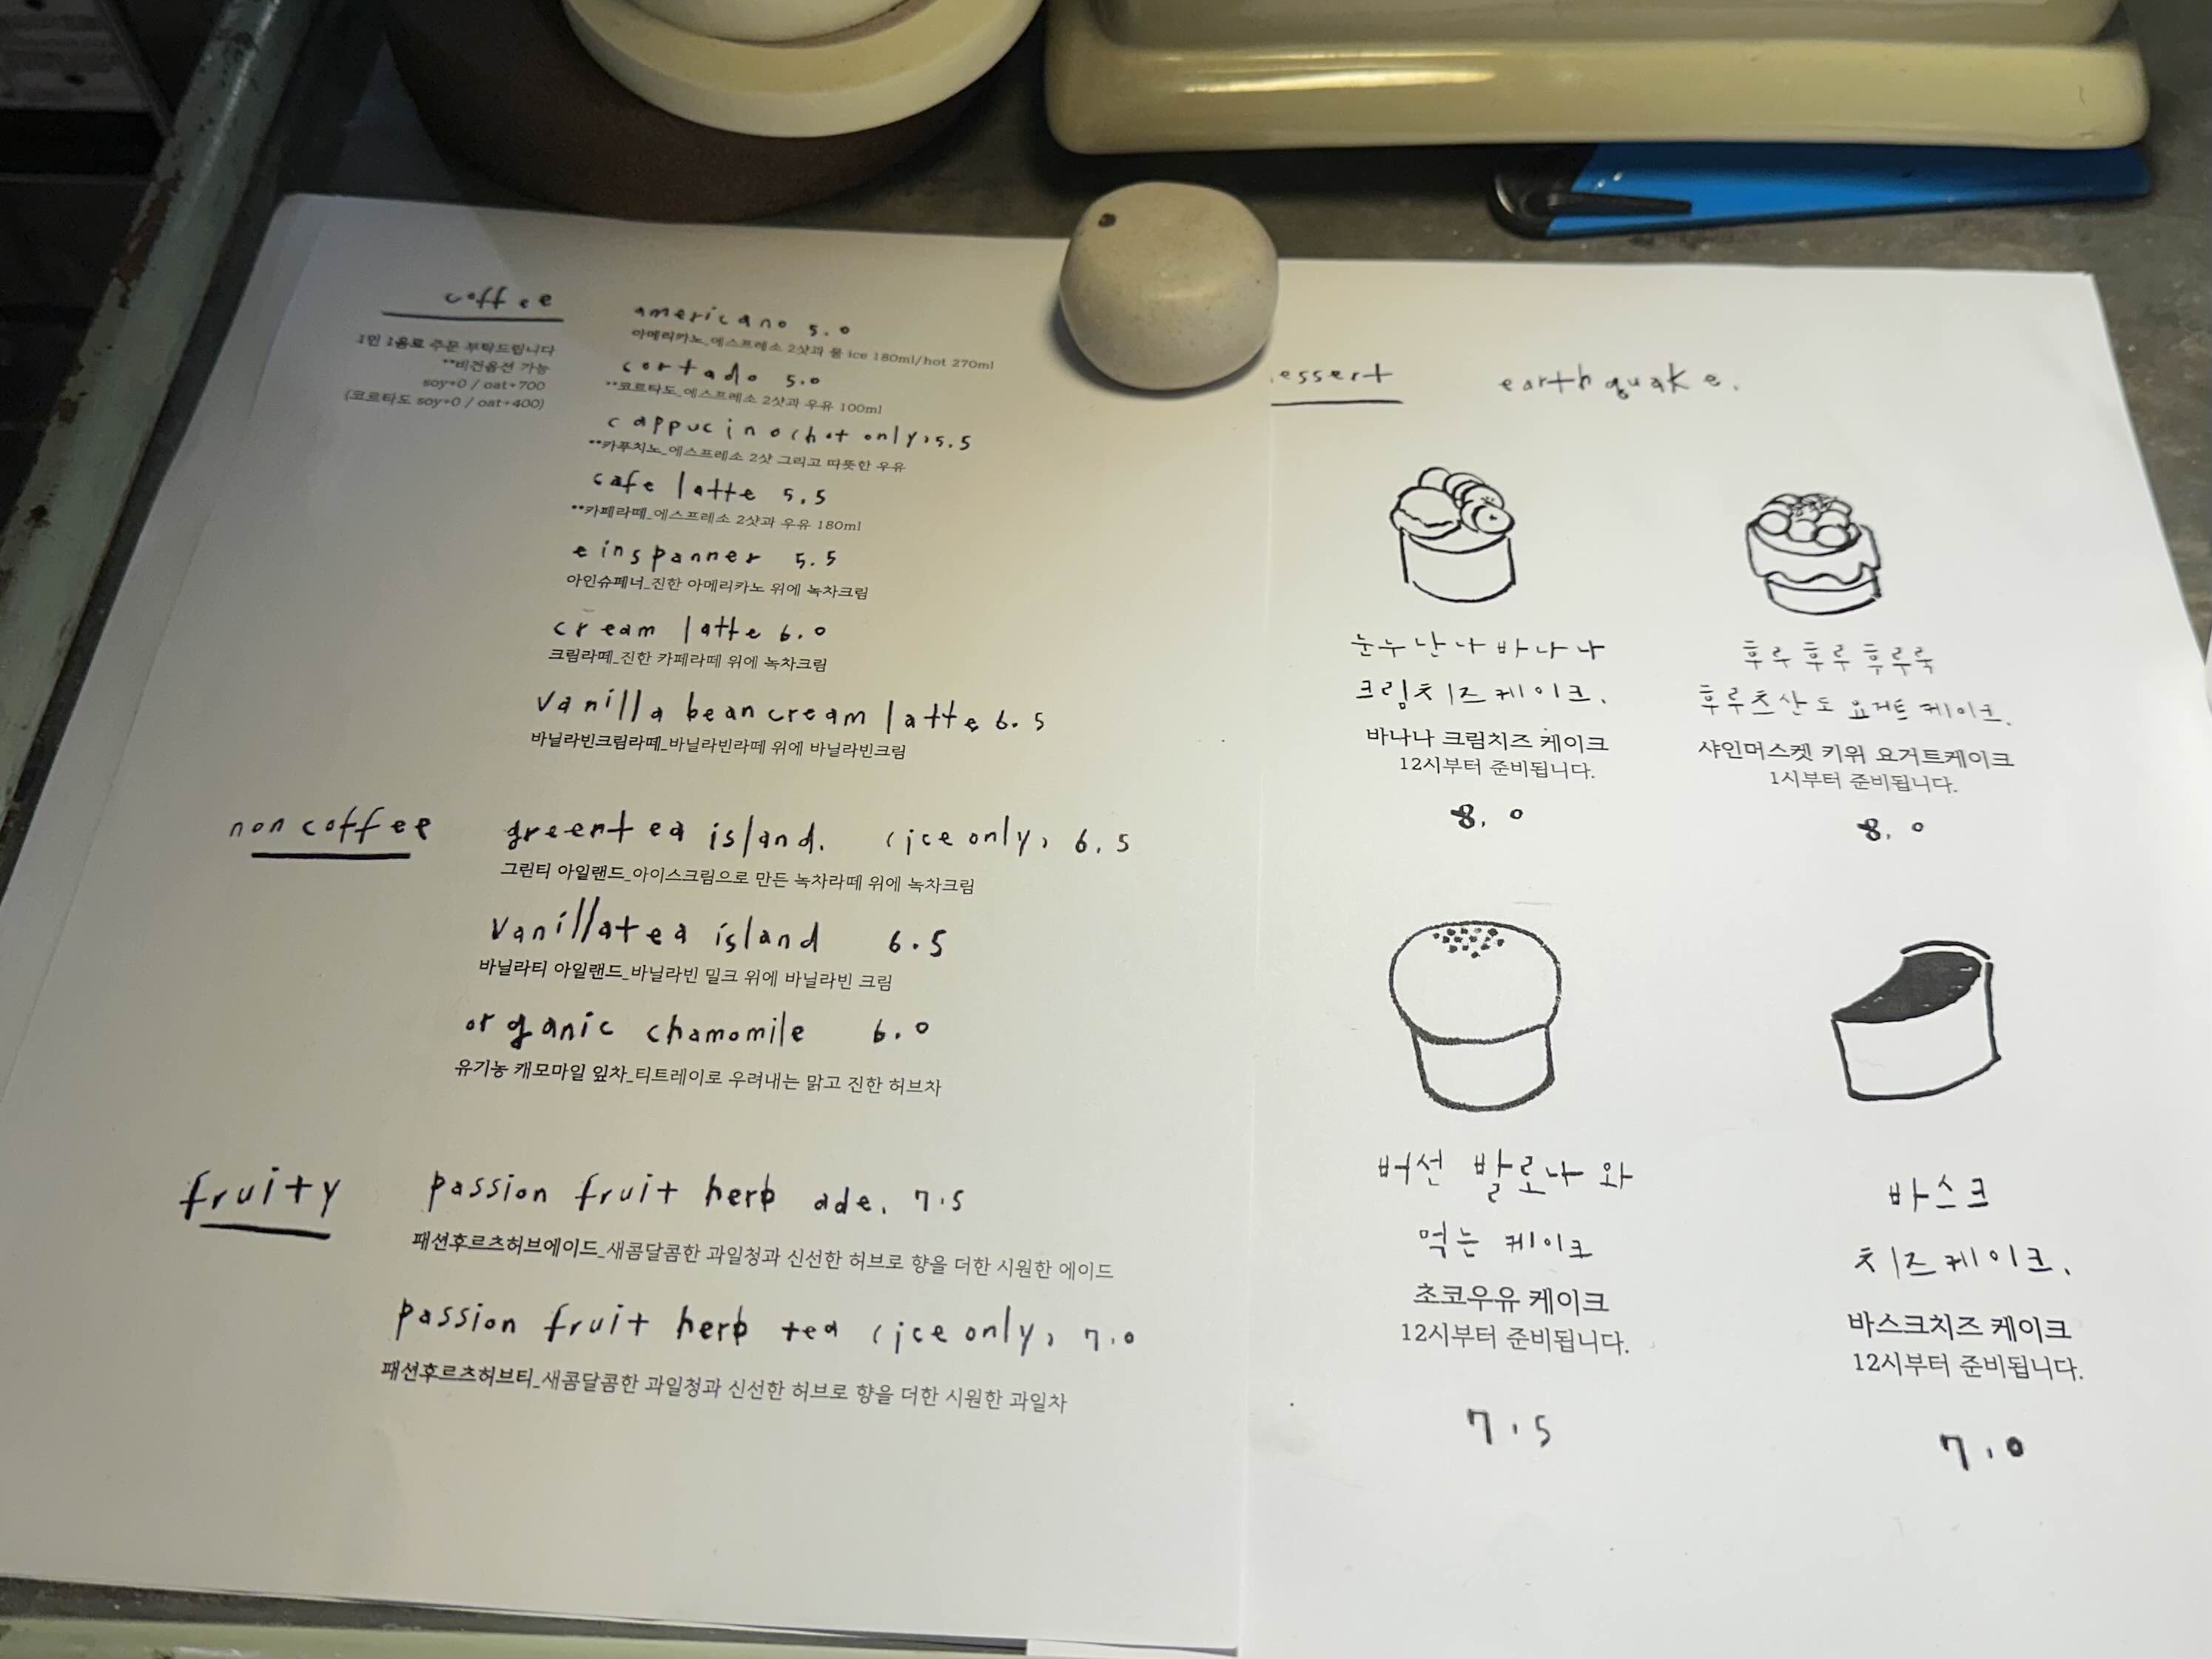 coffee
1인 1음료 주문 부탁드립니다
**비건옵션 가능
soy+0 / oat+700
(코르타도 soy+0 / oat+400)
americano 5.0
아메리카노_에스프레소 2샷과 물 ice 180ml/hot 270ml
cortado 5.0
**코르타도_에스프레소 2샷과 우유 100ml
cappucino (hot only) 5.5
**카푸치노_에스프레소 2샷 그리고 따뜻한 우유
cafe latte 5.5
**카페라떼_에스프레소 2샷과 우유 180ml
einspanner 5.5
아인슈페너_진한 아메리카노 위에 녹차크림
cream latte 6.0
크림라떼_진한 카페라떼 위에 녹차크림
vanilla bean cream latte 6.5
바닐라빈크림라떼_바닐라빈라떼 위에 바닐라빈크림
non coffee
greentea island. (ice only) 6.5
그린티 아일랜드_아이스크림으로 만든 녹차라떼 위에 녹차크림
vanillatea island 6.5
바닐라티 아일랜드_바닐라빈 밀크 위에 바닐라빈 크림
organic chamomile 6.0
유기농 캐모마일 잎차_티트레이로 우려내는 맑고 진한 허브차
fruity
passion fruit herb ade. 7.5
패션후르츠허브에이드_새콤달콤한 과일청과 신선한 허브로 향을 더한 시원한 에이드
passion fruit herb tea (ice only) 7.0
패션후르츠허브티_새콤달콤한 과일청과 신선한 허브로 향을 더한 시원한 과일차
essert
earthquake.
눈누난나바나나
크림치즈케이크.
바나나 크림치즈 케이크
12시부터 준비됩니다.
8.0
후루후루후루룩
후루츠산도 요거트케이크.
샤인머스켓 키위 요거트케이크
1시부터 준비됩니다.
8.0
버선 발로나와
먹는 케이크
초코우유 케이크
12시부터 준비됩니다.
7.5
바스크
치즈케이크.
바스크치즈 케이크
12시부터 준비됩니다.
7.0